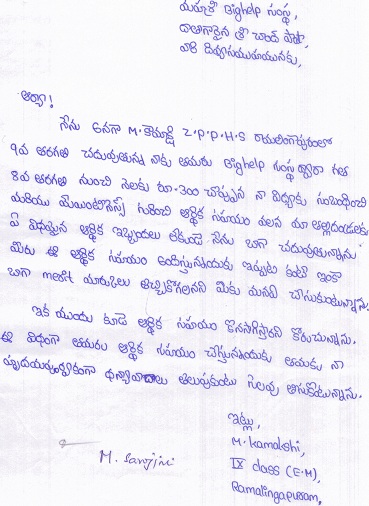 మహాశ్రీ Bighelp సంస్థ,
దాతగారైన శ్రీ చాంద్ పాషా,
వారి దివ్యసముఖమునకు,
ఆర్యా!
నేను అనగా M. కామాక్షి Z.P.P.H.S రామలింగాపురంలో
9వ తరగతి చదువుతున్న నాకు తమరు Bighelp సంస్థ ద్వారా గత
8వ తరగతి నుంచి నెలకు రూ.300 చొప్పున నా విద్యకు సంబంధించి
మరియు మెయింటెనెన్స్ గురించి ఆర్థిక సహాయం వలన మా తల్లిదండ్రులకు
ఏ విధమైన ఆర్థిక ఇబ్బందులు లేకుండా నేను బాగా చదువుతున్నాను
మీరు ఈ ఆర్థిక సహాయం అందిస్తున్నందుకు ఇప్పటి కంటే ఇంకా
బాగా merit మార్కులు తెచ్చుకోగలనని మీకు మనవి చేసుకుంటున్నాను.
ఇక ముందు కూడా ఆర్థిక సహాయం కొనసాగిస్తారని కోరుచున్నాను.
ఈ విధంగా తమరు ఆర్థిక సహాయం చేస్తున్నందుకు తమకు నా
హృదయపూర్వకంగా ధన్యవాదాలు తెలుపుకుంటు సెలవు తీసుకొంటున్నాను.
ఇట్లు,
M. kamakshi,
IX class (E.M),
Ramalingapuram,
M. Sarojini